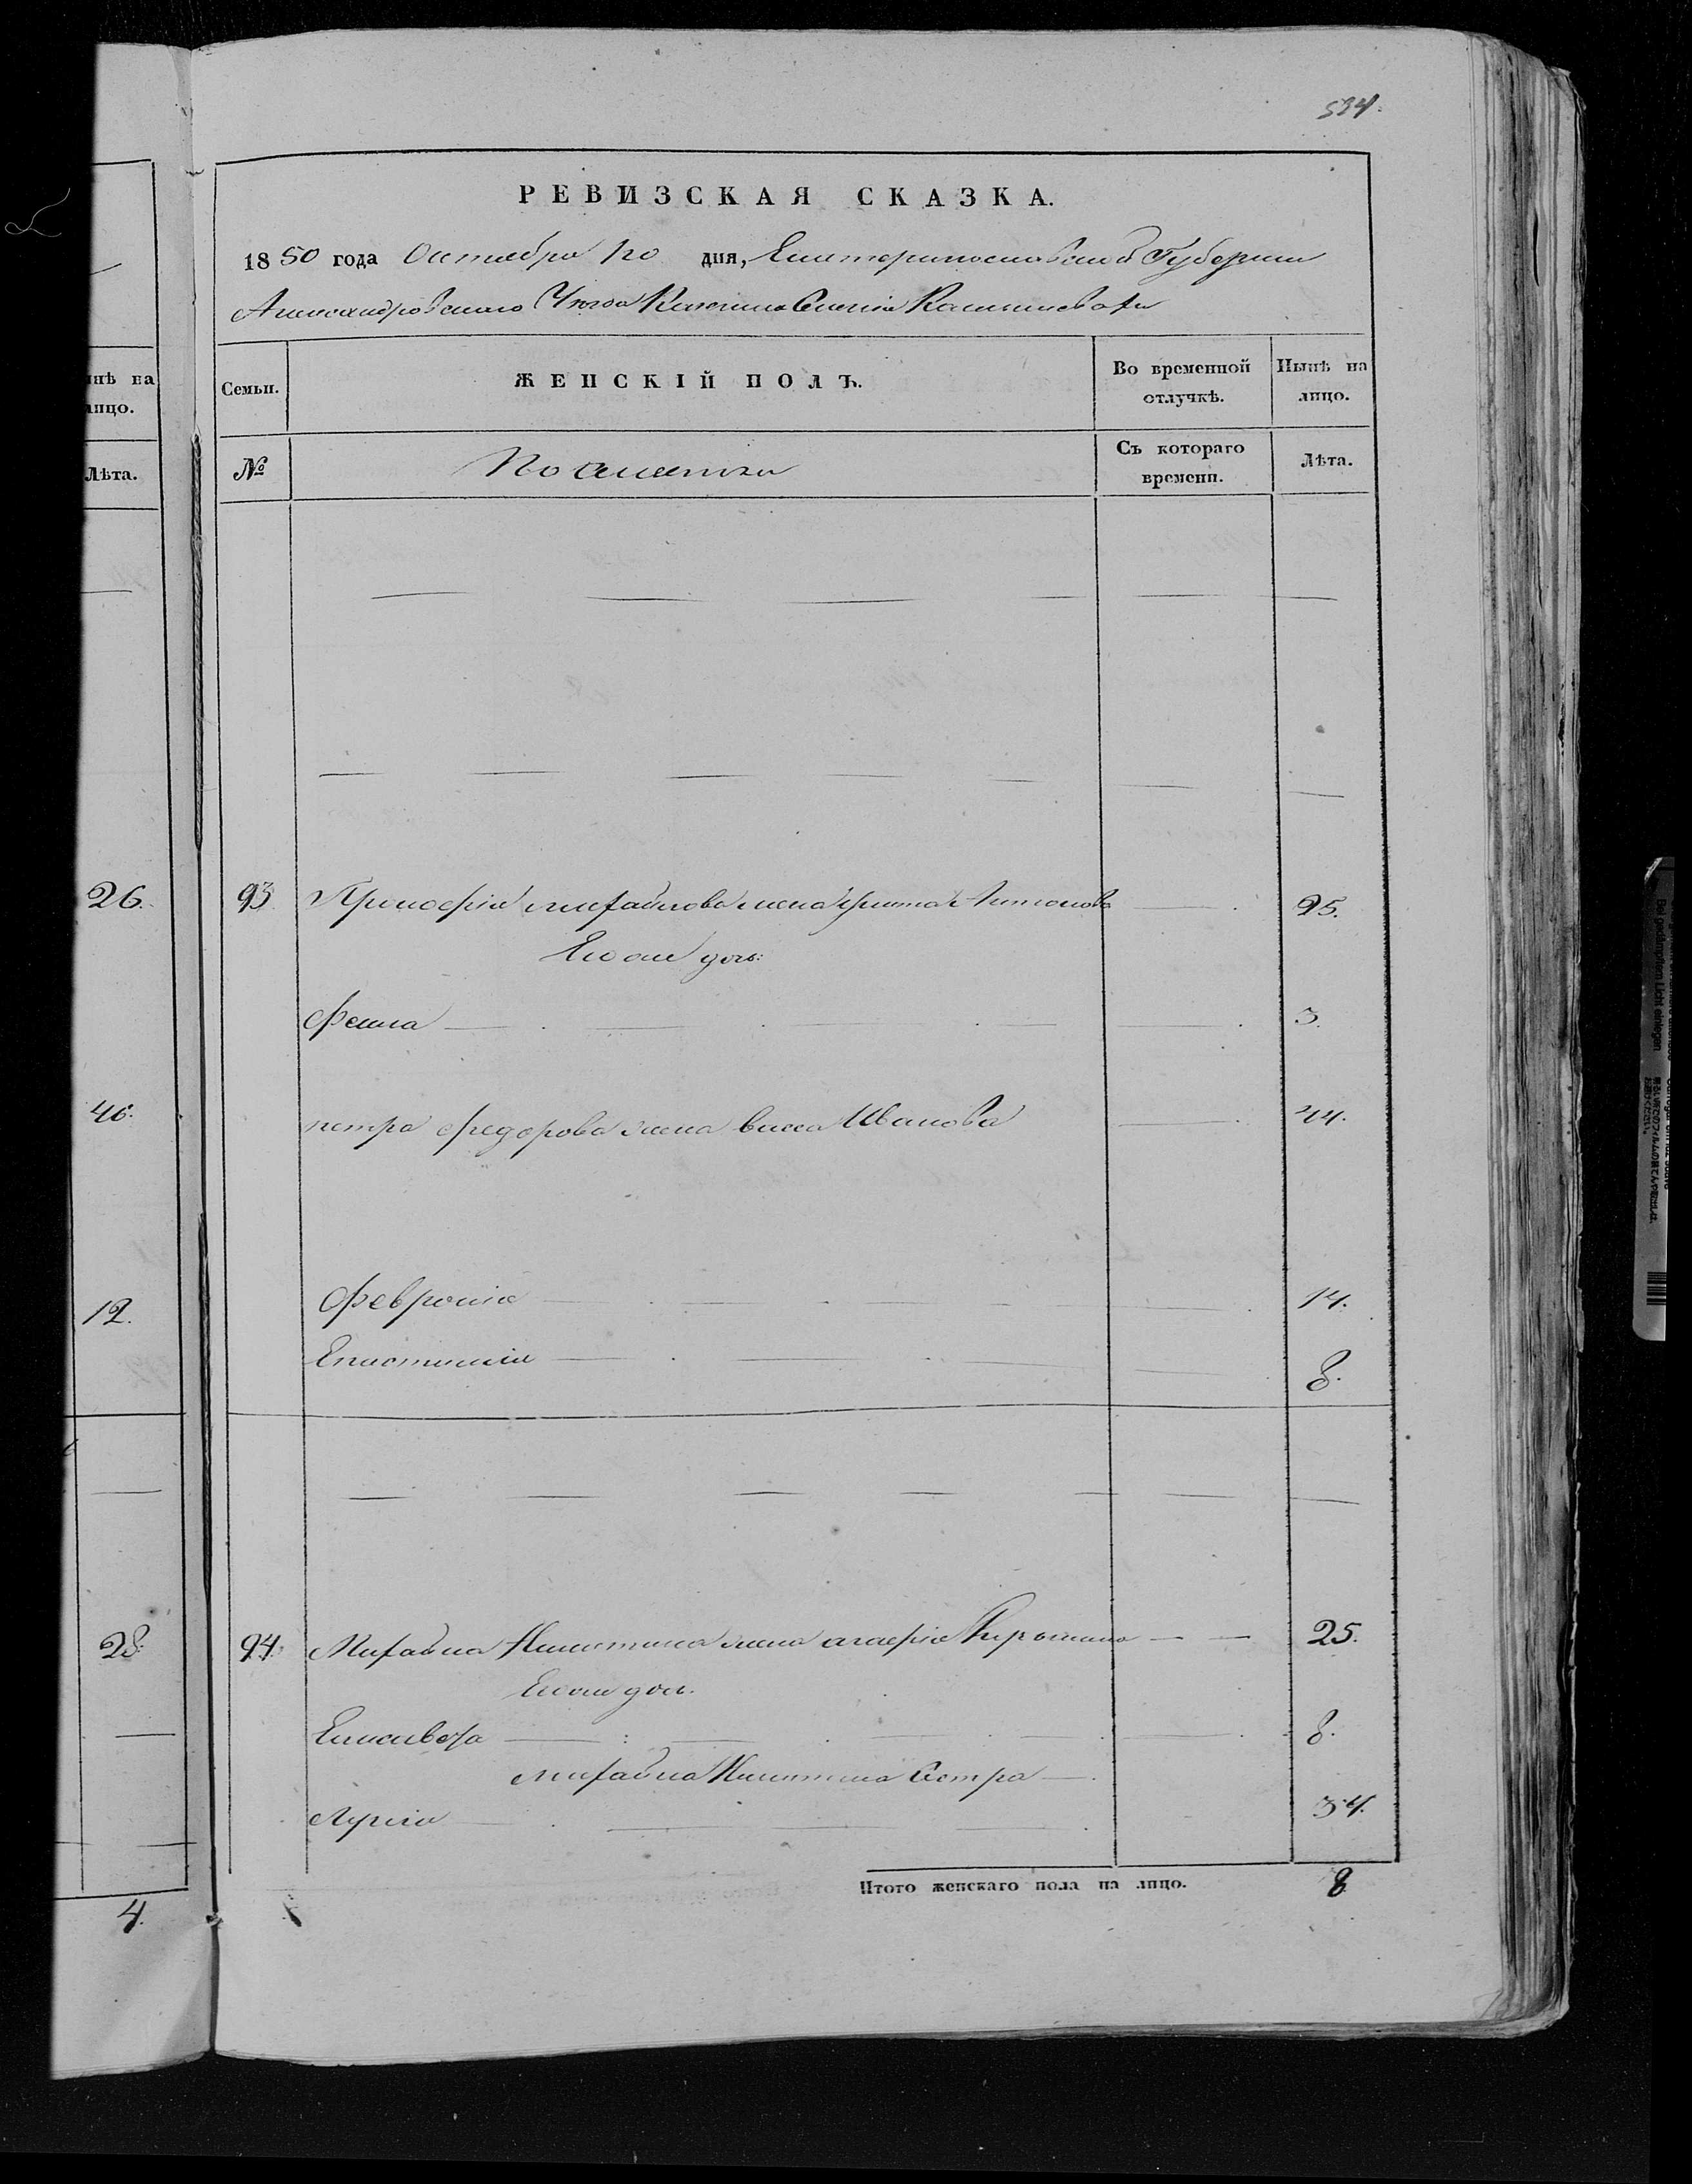 534.
РЕВИЗСКАЯ СКАЗКА.
1850 года Октября 20 дня, Екатеринославской Губернии
Александровскаго Уезда Казенна Селенія Камышевахи
Семьи.
ЖЕНСКІЙ ПОЛЪ.
Во временной отлучкѣ.
Нынѣ на лицо.
№
Съ котораго времени.
Лѣта.
ынѣ на
лицо.
Лѣта.
26.
93 Прокофія михайлова жена Антонова 25.
Его дочь:
Фекла 3.
46.
петра федорова жена васса Иванова 44.
12.
Феврошія 14.
Епистимія 8.
28.
94. Михайла Никитина жена агафія 25.
Его дочь.
Елисавефа 8.
михайла Никитина Сетра
Лукія 34.
Итого женскаго пола на лицо. 8
4.